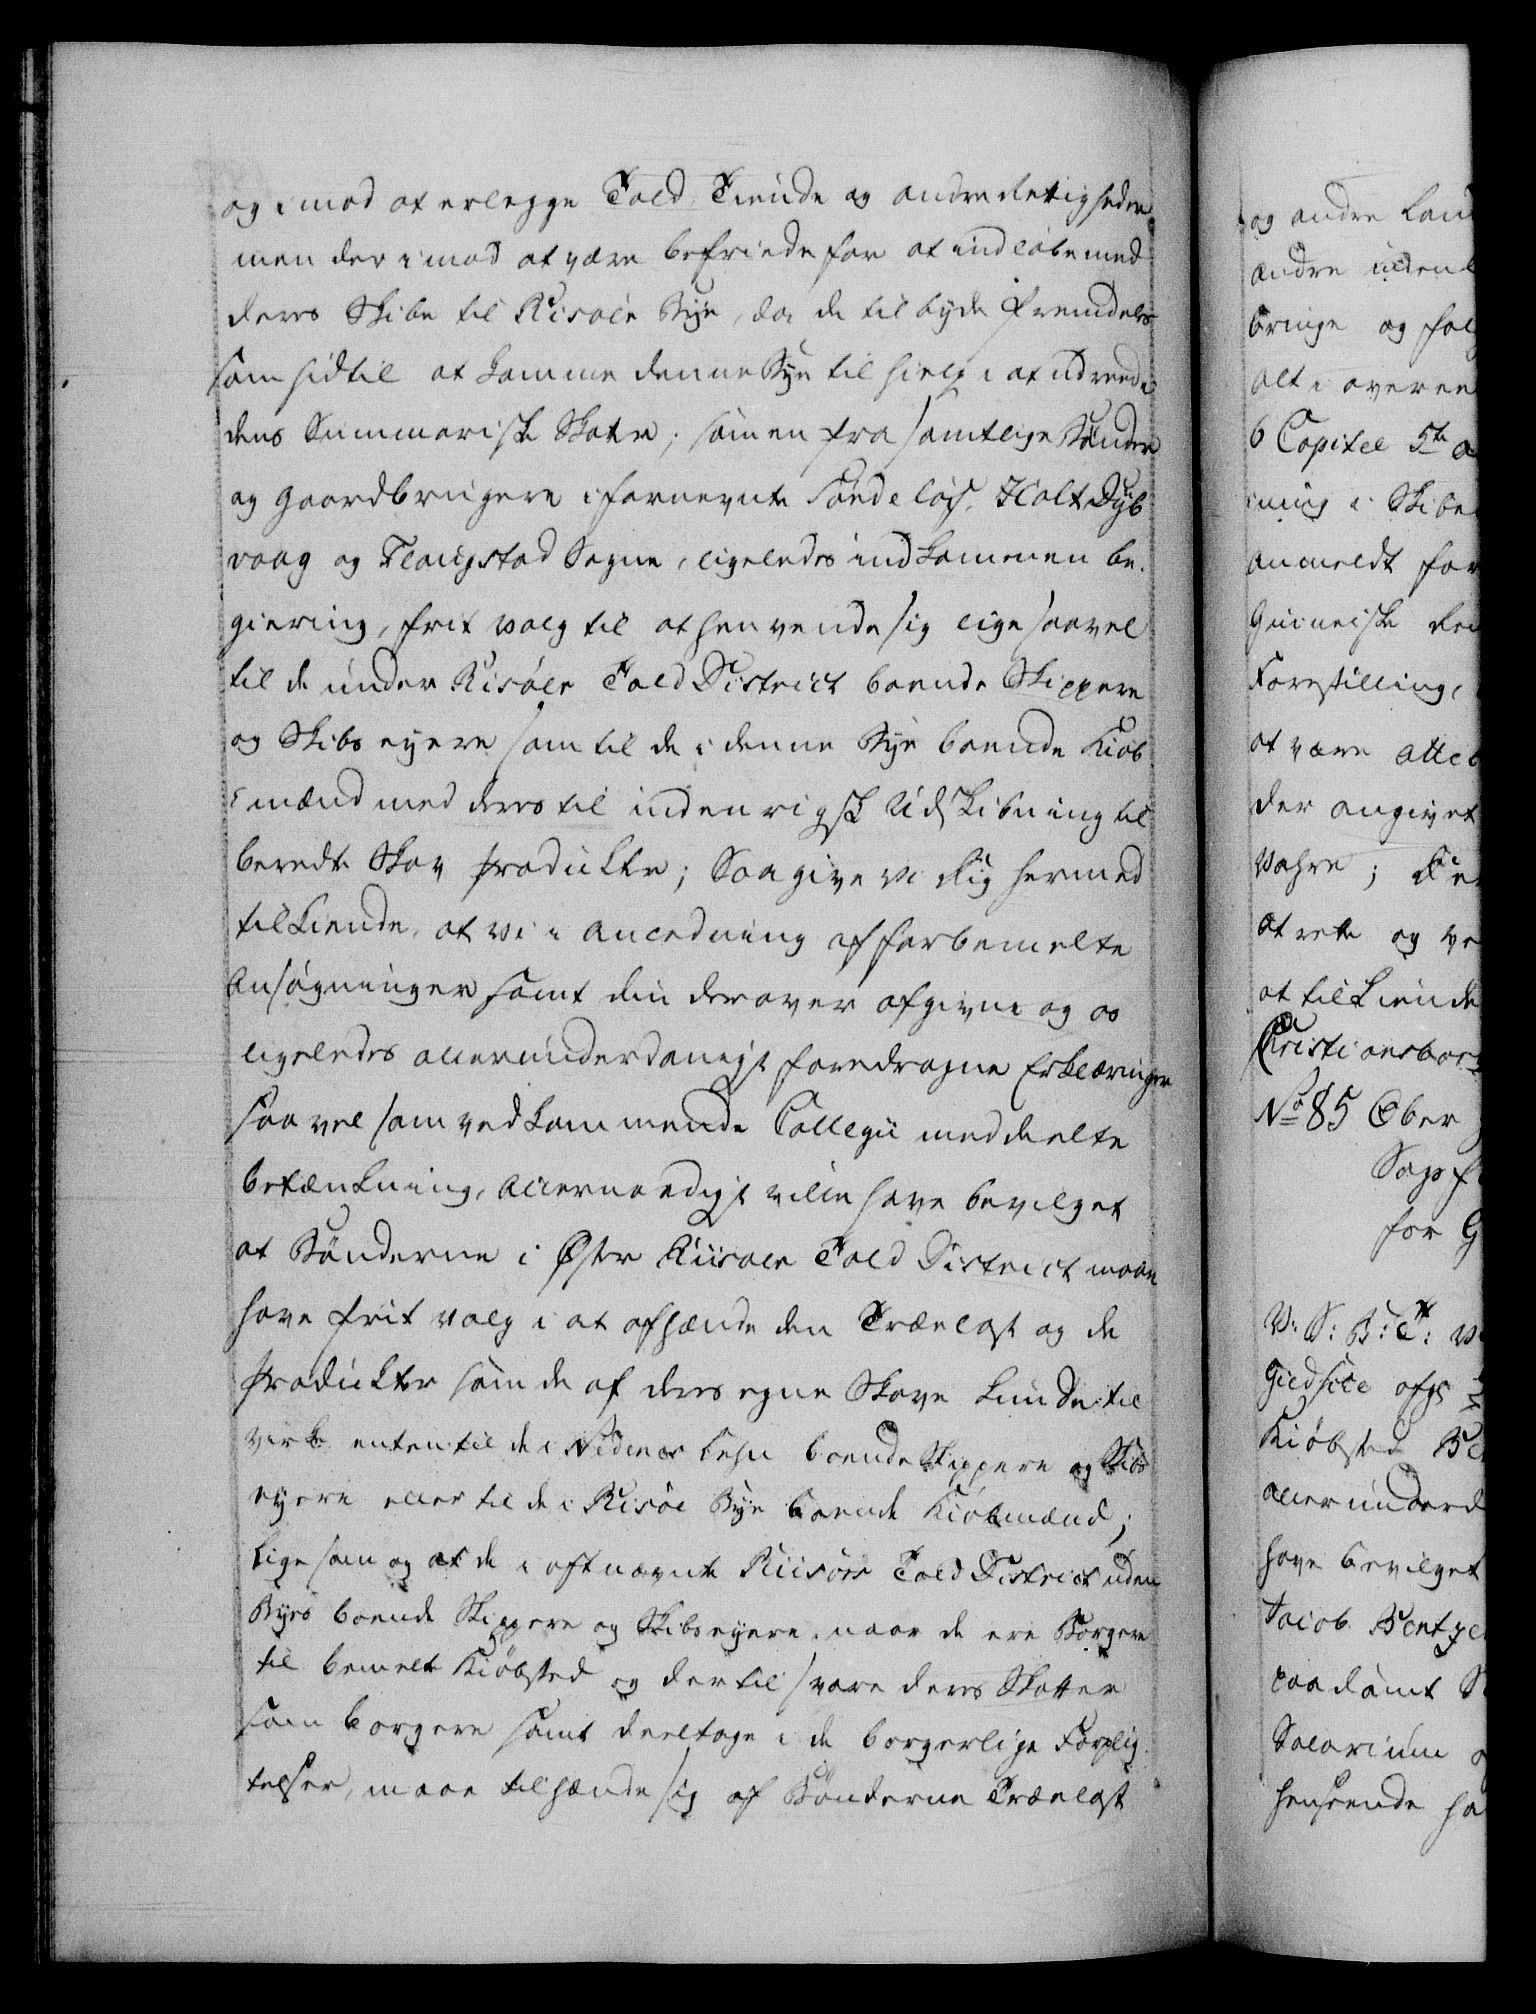 og imod at erlegge Told, Tiende og andre Rettigheder
men der imod at være befriede for at indløbe med
deres Skibe til Risøer Bye, da de tilbyde fremdeles
som hidtil at komme denne Bye til hielp i at udreede
dens Summariske Skatter; som en fra samtlige Bønder
og Gaardbrugere i fornevnte Søndeløf, Holt Dyb
vaag og Flaugstad Sogne, ligeledes indkommen be-
giering, frit valg til at henvende sig lige saavel
til de under Risøer Told District boende Skippere
og Skibs eyere som til de i denne Bye boende Kiøb
mænd med deres til indenrigsk Udskibning til
beredte Skov Produkter; Saa give Vi dig hermed
tilkiende, at vi i Anledning af forbemelte
Ansøgninger samt din derover afgivne og os
ligeledes allerunderdanigst foredragne Erklæringer
saavel som vedkommende Collegii meddeelte
betænkning, allernaadigst ville have bevilget
at Bønderne i Øster Riisøer Told District maae
have frit valg i at afhænde den Trælast og de
Produkter som de af deres egne Skove kunde til
virke enten til de i Nedenes Lehn boende Skippere og Skibs
eyere eller til de i Risøe Bye boende Kiøbmænd;
lige som og at de i oftnævnte Riisøers Told District uden
Byes boende Skippere og Skibseyere, naar de ere Borgere
til bemelte Kiøbsted og dertil svare deres Skatter
som borgere samt deeltage i de borgerlige Forplig-
telser, maae tilhænde sig af Bønderne Trælast
og andre Land
andre uden
bringe og
alt i overee
6 Capitel 5te
ning i Skibe
anmeldt for
Guineiske
Forestilling,
at være
der angivet
Vahre;
at rette og ve
at tilkiende
Christiansborg
No 85 Ober
Sags
for G
V: S: B: T:
Gieldsøe afgl
Kiøbsted
allerunderd
have bevilget
Jacob Bentze
paadømt
Salarium
henseende ha